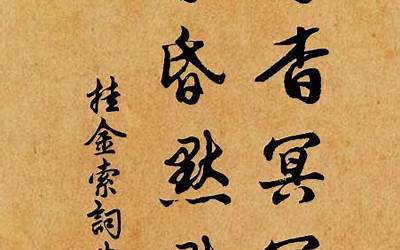 杳冥
昏默
挂金索詞